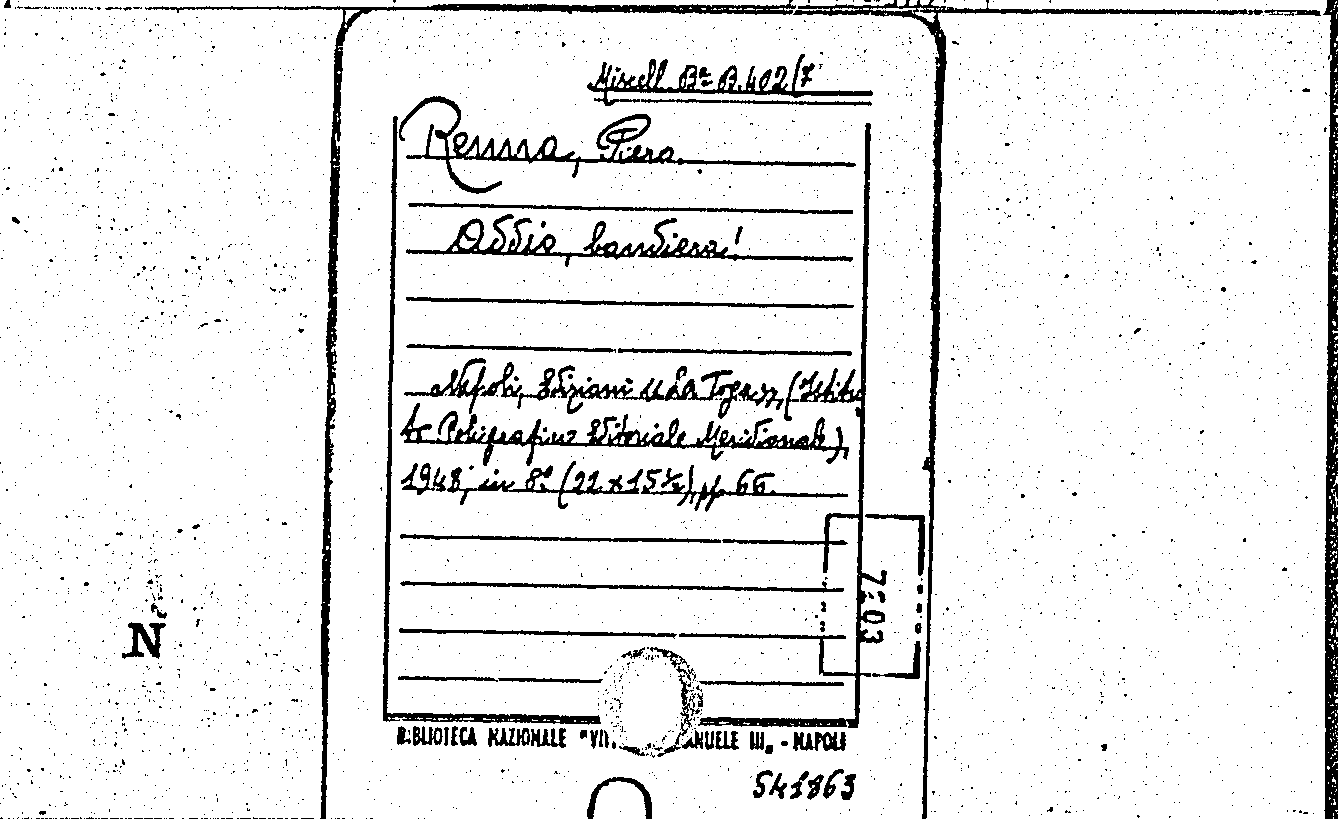 Miscell. Bª B.402/7
Renna, Piera.
Addio, bandiera!
Napoli, Edizioni "La Toga", (Istitu
to Poligrafico Editoriale Meridionale),
1948; in 8º (22 x 15½), pp. 66.
7203
N
BIBLIOTECA NAZIONALE "VIT ANUELE III" - NAPOLI
541863